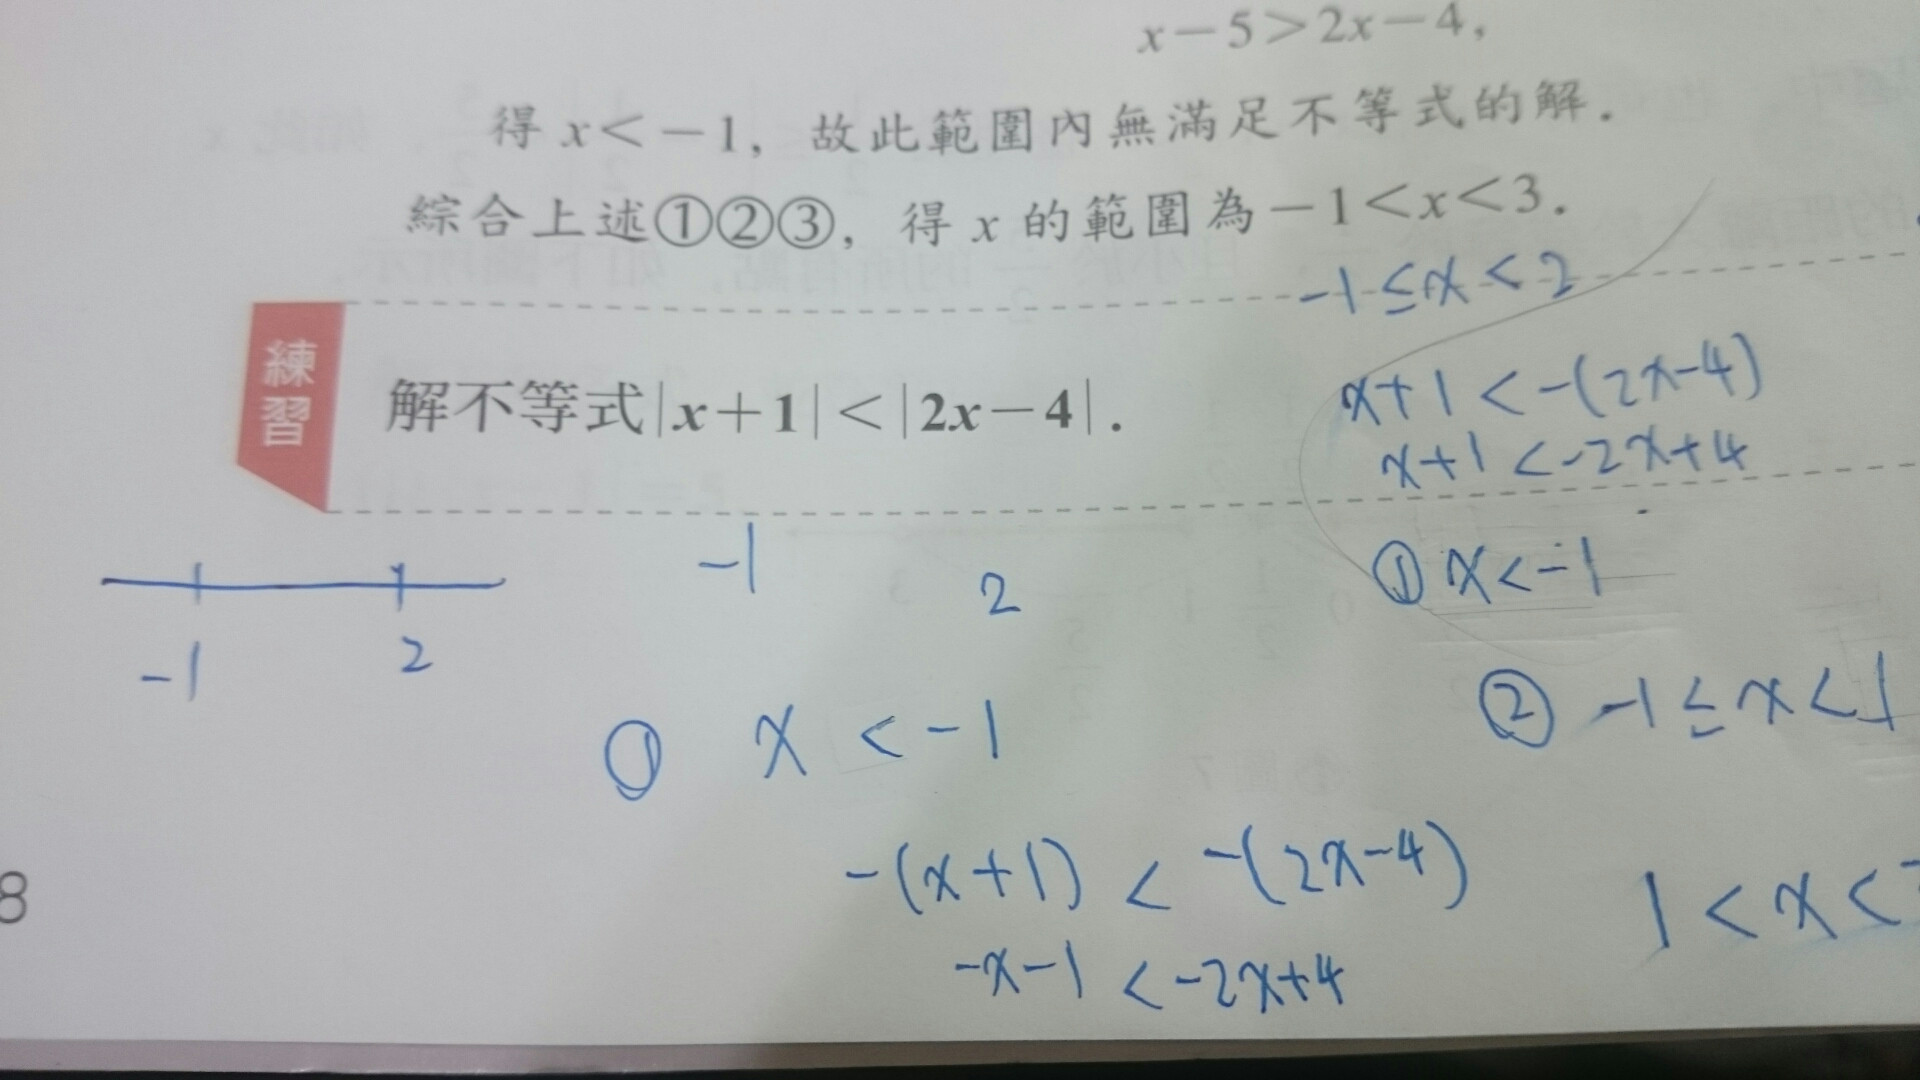 x－5＞2x－4，
得 x＜－1，故此範圍內無滿足不等式的解．
綜合上述①②③，得 x 的範圍為－1＜x＜3．
-1≤x<2
練習
解不等式|x＋1|＜|2x－4|．
x+1<-(2x-4)
x+1<-2x+4
-1
2
① x<-1
-1
2
② -1≤x<1
① x<-1
-(x+1)<-(2x-4)
1<x<
-x-1<-2x+4
8